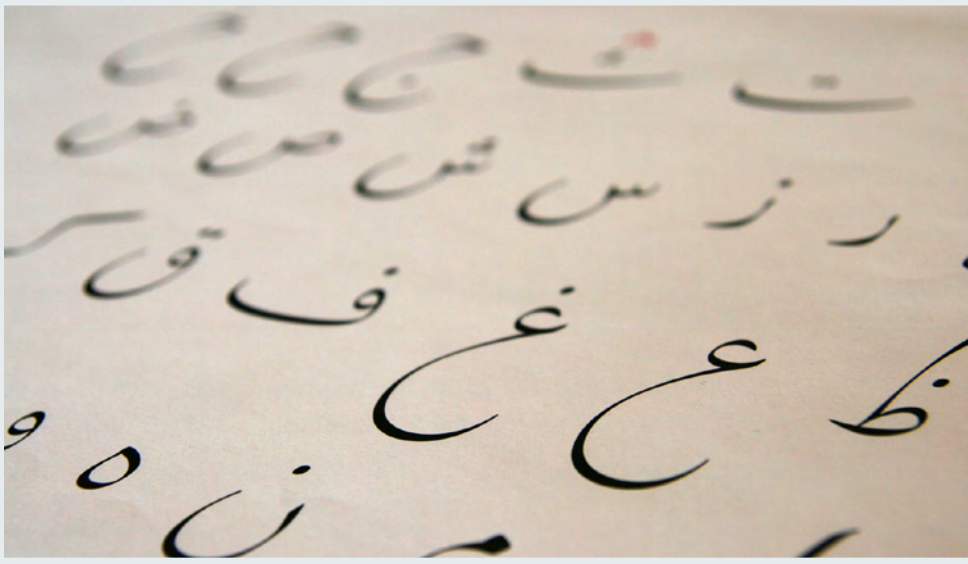 ت ث ج ح خ
ر ز س ش ص ض
ظ ع غ ف ق
م ن ه و